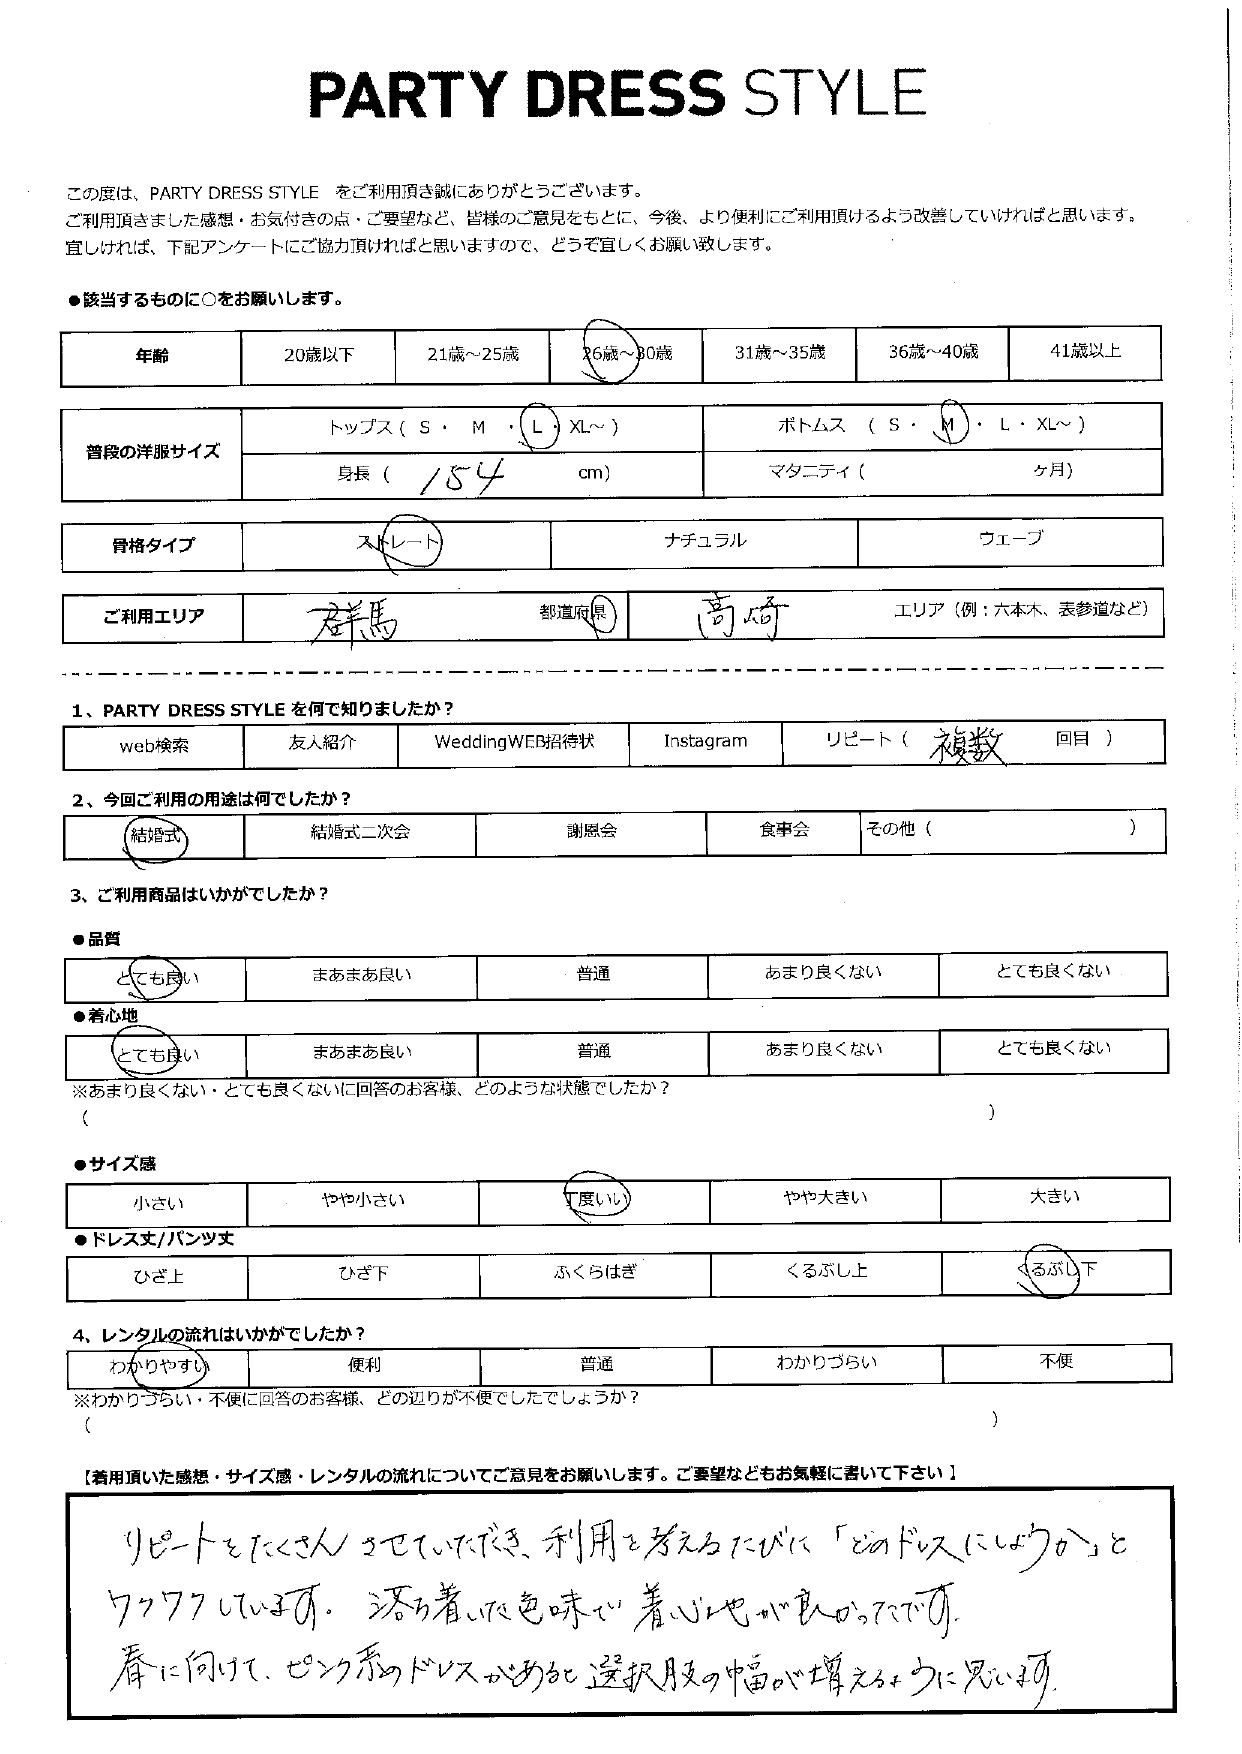 PARTY DRESS STYLE
この度は、PARTY DRESS STYLE をご利用頂き誠にありがとうございます。
ご利用頂きました感想・お気付きの点・ご要望など、皆様のご意見をもとに、今後、より便利にご利用頂けるよう改善していければと思います。
宜しければ、下記アンケートにご協力頂ければと思いますので、どうぞ宜しくお願い致します。
●該当するものに○をお願いします。
年齢 20歳以下 21歳～25歳 26歳～30歳 31歳～35歳 36歳～40歳 41歳以上
普段の洋服サイズ トップス ( S ・ M ・ L ・ XL～ ) ボトムス ( S ・ M ・ L ・ XL～ )
身長 ( 154 cm) マタニティ ( ヶ月)
骨格タイプ ストレート ナチュラル ウェーブ
ご利用エリア 群馬 都道府県 高崎 エリア（例：六本木、表参道など）
1、PARTY DRESS STYLE を何で知りましたか？
web検索 友人紹介 WeddingWEB招待状 Instagram リピート ( 複数 回目 )
2、今回ご利用の用途は何でしたか？
結婚式 結婚式二次会 謝恩会 食事会 その他 ( )
3、ご利用商品はいかがでしたか？
●品質
とても良い まあまあ良い 普通 あまり良くない とても良くない
●着心地
とても良い まあまあ良い 普通 あまり良くない とても良くない
※あまり良くない・とても良くないに回答のお客様、どのような状態でしたか？
( )
●サイズ感
小さい やや小さい 丁度いい やや大きい 大きい
●ドレス丈/パンツ丈
ひざ上 ひざ下 ふくらはぎ くるぶし上 くるぶし下
4、レンタルの流れはいかがでしたか？
わかりやすい 便利 普通 わかりづらい 不便
※わかりづらい・不便に回答のお客様、どの辺りが不便でしたでしょうか？
( )
【着用頂いた感想・サイズ感・レンタルの流れについてご意見をお願いします。ご要望などもお気軽に書いて下さい 】
リピートをたくさんさせていただき、利用を考えるたびに「どのドレスにしようか」と
ワクワクしています。落ち着いた色味で着心地が良かったです。
春に向けて、ピンク系のドレスがあると選択肢の幅が増えるように思います。